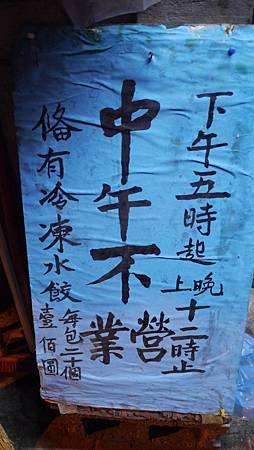 下午五時起
晚上十二時止
中午不
營業
俻有冷凍水餃
每包二十個
壹佰圓